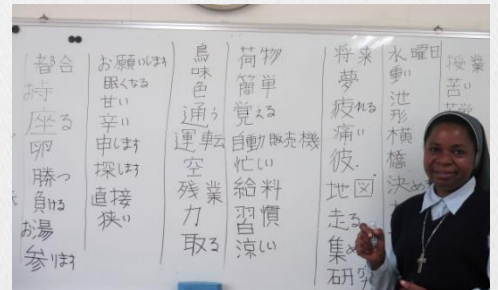 都合
待
座る
卵
勝つ
負ける
お湯
参ります
お願いします
眠くなる
甘い
辛い
申します
探します
直接
狭い
鳥
味
色
通う
運転
空
残業
力
取る
荷物
簡単
覚える
自動販売機
忙しい
給料
習慣
涼しい
将来
夢
疲れる
痛い
彼
地図
走る
集め
研究
水曜日
重い
池
形
横
橋
決め
授業
苦い